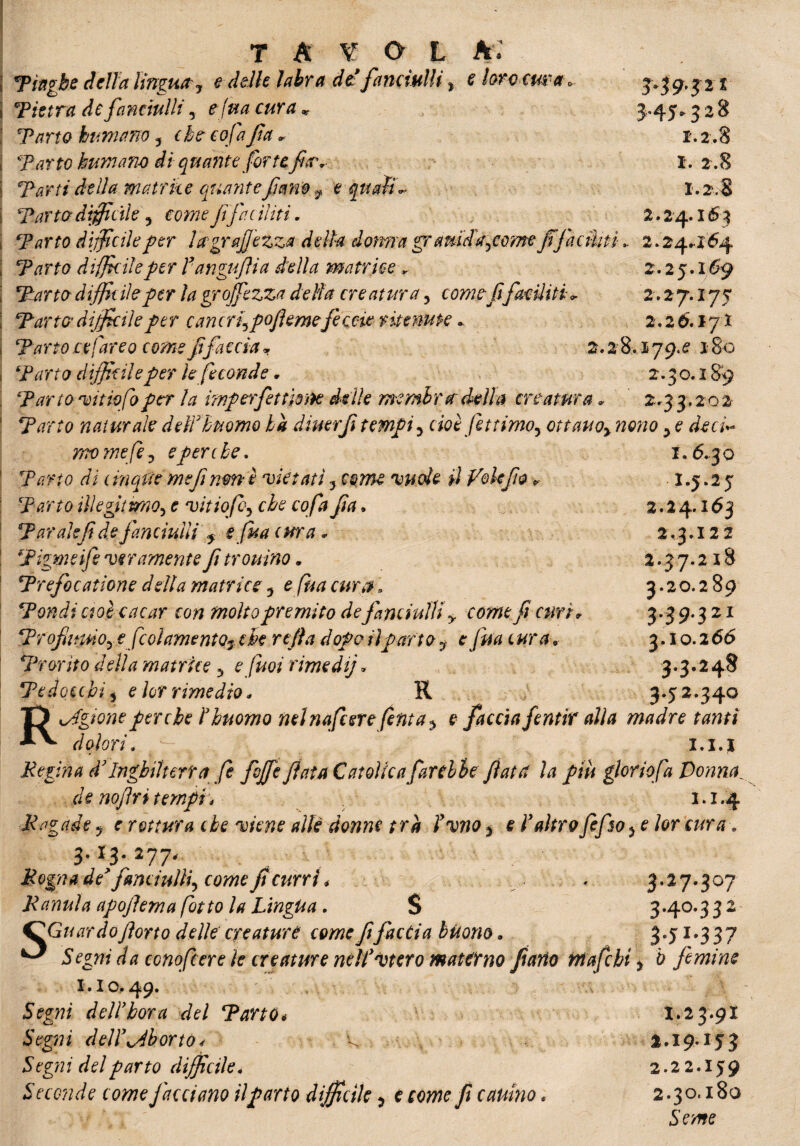 TAVOLA.
Piaghe della lingua, e delle labra de' fanciulli, e loro cura. 3.39.321
Pietra de fanciulli, e sua cura. 3.45.328
Parto humano, che cosa sia. 1.2.8
Parto humano di quante sorte sia. 1.2.8
Parti della matrice quante siano, e quali. 1.2.8
Parto difficile, come si faciliti. 2.24.163
Parto difficile per la grassezza della donna grauida, come si faciliti. 2.24.164
Parto difficile per l'angustia della matrice. 2.25.169
Parto difficile per la grossezza della creatura, come si faciliti. 2.27.175
Parto difficile per cancri, posteme feccie ritenute. 2.26.171
Parto cesareo come si faccia. 2.28.179.e 180
Parto difficile per le seconde. 2.30.189
Parto vitioso per la imperfettione delle membra della creatura. 2.33.202
Parto naturale dell'huomo hà diuersi tempi, cioè settimo, ottauo, nono, e deci-
mo mese, e perche. 1.6.30
Parto di cinque mesi non è vietati, come vuole il Velesio. 1.5.25
Parto illegitimo, e vitioso, che cosa sia. 2.24.163
Paralesi de fanciulli, e sua cura. 2.3.122
Pigmei se veramente si trouino. 2.37.218
Prefocatione della matrice, e sua cura. 3.20.289
Pondi cioè cacar con molto premito de fanciulli, come si curi. 3.39.321
Profluuio, e scolamento, che resta dopo il parto, e sua cura. 3.10.266
Prorito della matrice, e suoi rimedij. 3.3.248
Pedocchi, e lor rimedio. R 3.52.340
RAgione perche l'huomo nel nascere senta, e faccia sentir alla madre tanti
dolori. 1.1.1
Regina d'Inghilterra se fosse stata Catolica sarebbe stata la più gloriosa Donna
de nostri tempi. 1.1.4
Ragade, e rottura che viene alle donne trà l'vno, e l'altro sesso, e lor cura.
3.13.277.
Rogna de' fanciulli, come si curri. 3.27.307
Ranula apostema sotto la Lingua. S 3.40.332
SGuardo storto delle creature come si faccia buono. 3.51.337
Segni da conoscere le creature nell'vtero materno siano maschi, ò femine
1.10.49.
Segni dell'hora del Parto. 1.23.91
Segni dell'Aborto. 2.19.153
Segni del parto difficile. 2.22.159
Seconde come facciano il parto difficile, e come si cauino. 2.30.180
Seme